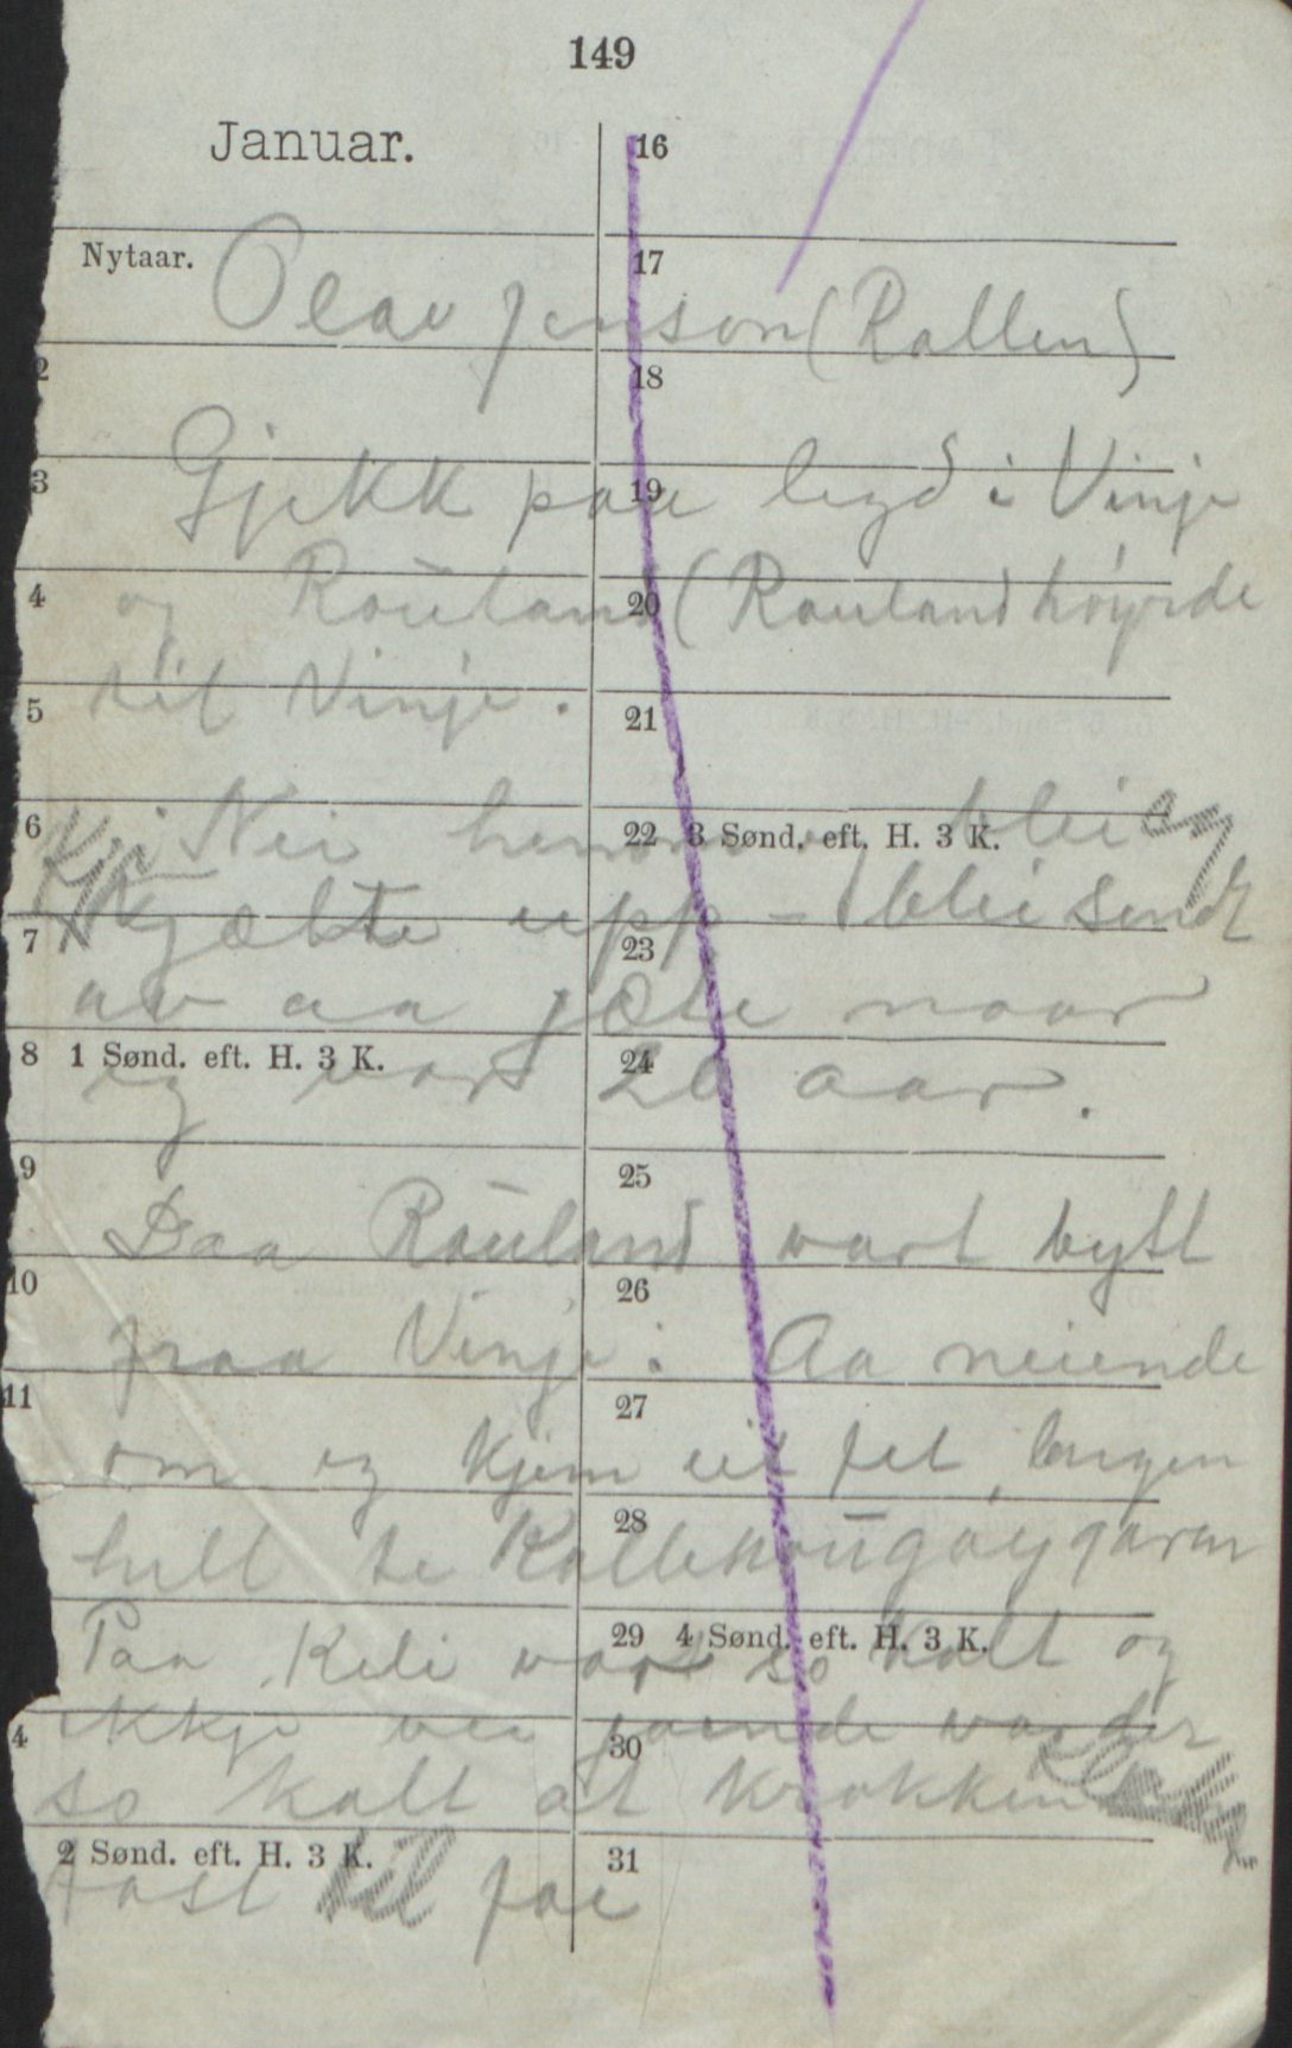 149
Januar.
16
Nytaar.
17
Olav Jenson (Rallen)
2
18
3
19
Gjekk paa legd i Vinje
4
20
og Rauland (Rauland høyrde
til Vinje.
5
21
6
22 3 Sønd. eft. H. 3 K.
Nei blei eg
7
23
kjælte upp - blei sendt
av aa jæte naar
8 1 Sønd. eft. H. 3 K.
24
eg var 20 aar.
9
25
Daa Rauland vart bytt
10
26
fraa Vinje: Aa neiende
11
27
om eg kjem eit fet lengen
28
hell te
29 4 Sønd. eft. H. 3 K.
Paa var so kalt og
4
30
ikkje var der
so kalt at krokken
2 Sønd. eft. H. 3 K.
31
fast til